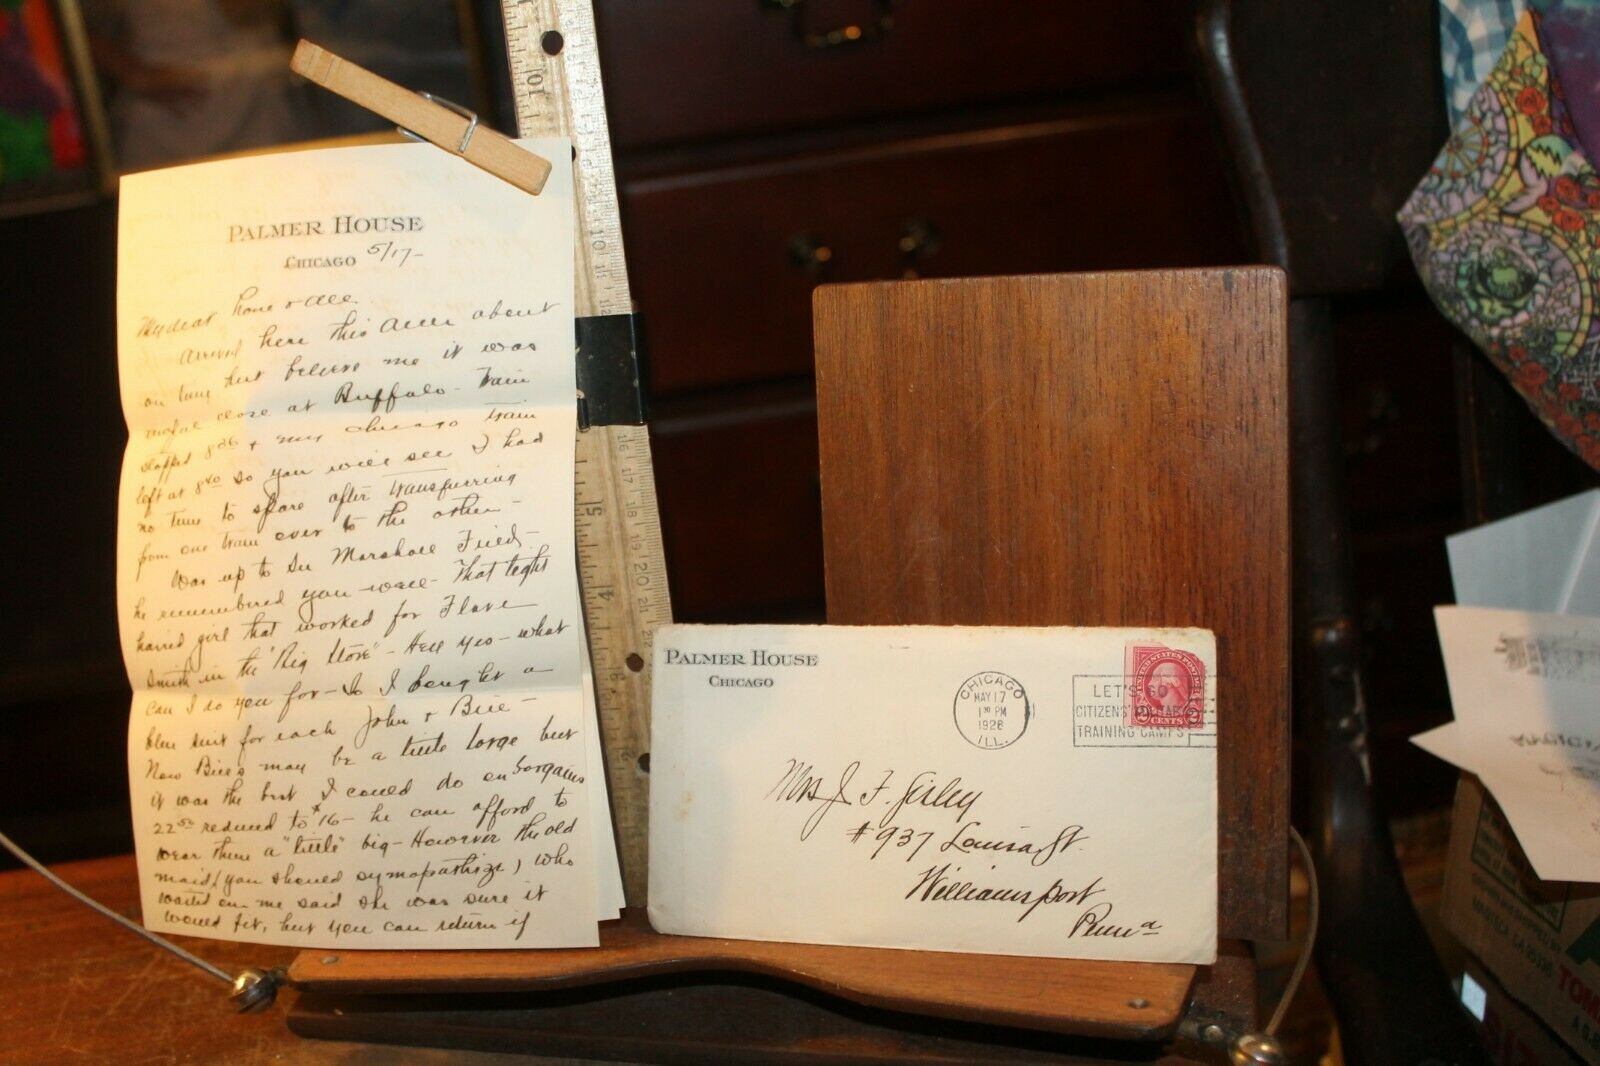 PALMER HOUSE
CHICAGO 5/17-
My dear home & all
Arrived here this a.m. about
on time but believe me it was
awful close at Buffalo - train
stopped 8 26 + my Chicago train
left at 8 40 so you will see I had
no time to spare after transferring
from one train over to the other -
Was up to see Marshall Field -
he remembered you well - That light
haired girl that worked for Flave
Smith in the "Big Store" - Hell yes - what
can I do you for - So I bought a
blue suit for each John & Bill -
Now Bill's may be a little large but
it was the best I could do on bargains
22 50 reduced to $16 - he can afford to
wear them a "little" big - However the old
maid (you should sympathize) who
waited on me said she was sure it
would fit, but you can return if
PALMER HOUSE
CHICAGO
CHICAGO
MAY 17
1 30 PM
1926
ILL.
LET'S GO
CITIZENS MILITARY
TRAINING CAMPS
UNITED STATES POSTAGE
2 CENTS 2
Mrs J. F.
#937 Louisa St.
Williamsport
Penna